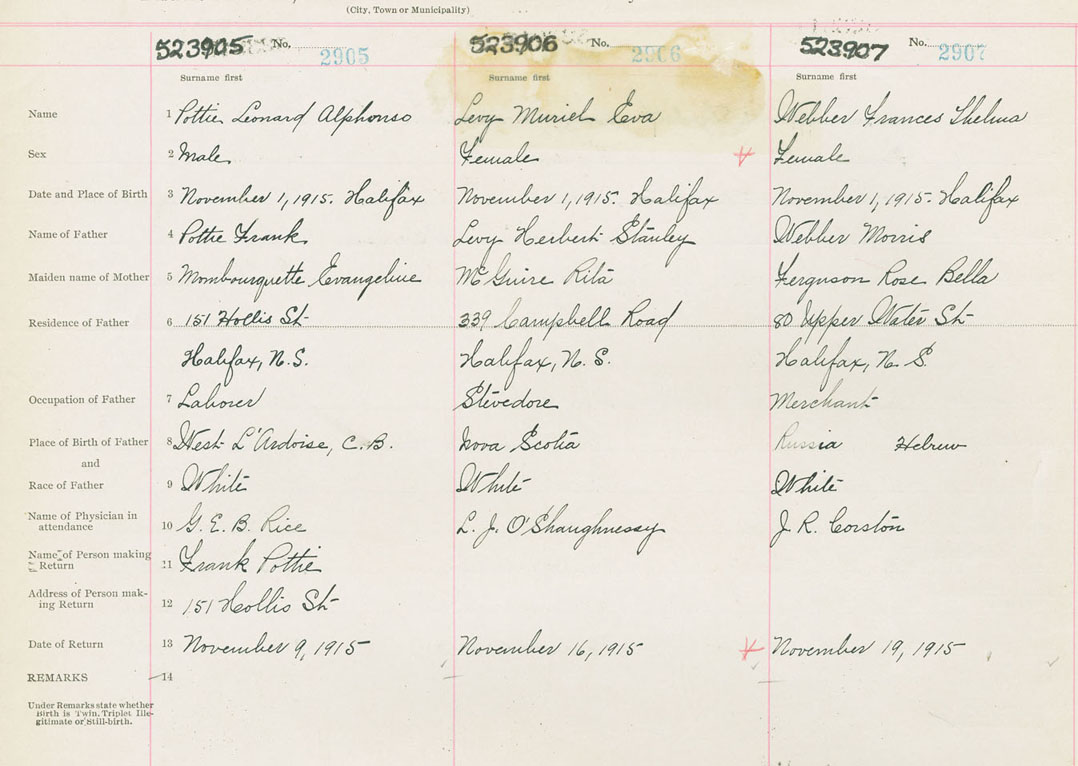 (City, Town or Municipality)
523905 No. 2905 523906 No. 2906 523907 No. 2907
Surname first Surname first Surname first
Name 1 Pottie Leonard Alphonso Levy Muriel Eva Webber Frances Thelma
Sex 2 Male Female Female
Date and Place of Birth 3 November 1, 1915. Halifax November 1, 1915. Halifax November 1, 1915. Halifax
Name of Father 4 Pottie Frank Levy Herbert Stanley Webber Morris
Maiden name of Mother 5 Mombourquette Evangeline McGuire Rita Ferguson Rose Bella
Residence of Father 6 151 Hollis St 339 Campbell Road 80 Upper Water St
Halifax, N.S. Halifax, N.S. Halifax, N.S.
Occupation of Father 7 Laborer Stevedore Merchant
Place of Birth of Father 8 West L'Ardoise, C.B. Nova Scotia Russia Hebrew
and
Race of Father 9 White White White
Name of Physician in
attendance 10 G. E. B. Rice L. J. O'Shaughnessy J. R. Corston
Name of Person making
Return 11 Frank Pottie
Address of Person mak-
ing Return 12 151 Hollis St
Date of Return 13 November 9, 1915 November 16, 1915 November 19, 1915
REMARKS 14
Under Remarks state whether
Birth is Twin, Triplet Ille-
gitimate or Still-birth.